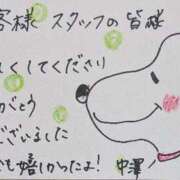 客様 スタッフの皆様
しくしてください
がとう
ございました
も嬉しかったよ! 中澤